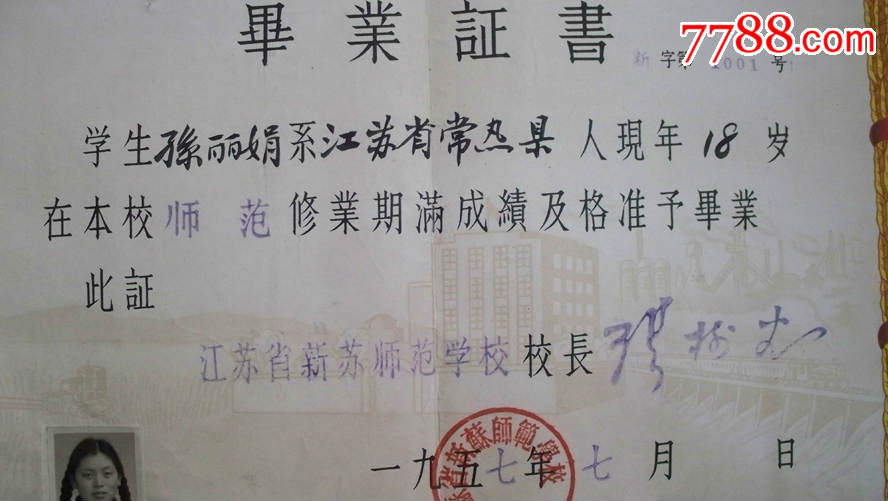 畢業証書
7788.com
新字第1001号
学生孫丽娟系江苏省常热县人現年18岁
在本校师范修業期滿成績及格准予畢業
此証
江苏省新苏师范学校校長
蘇師範學校
一九五七年七月 日